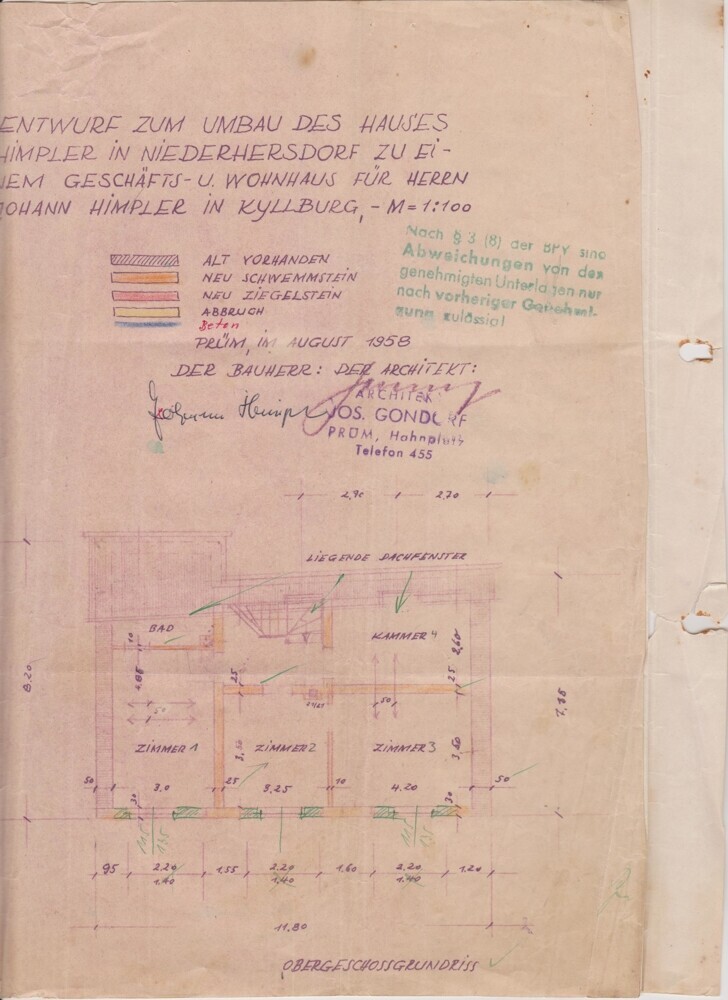 ENTWURF ZUM UMBAU DES HAUSES
HIMPLER IN NIEDERHERSDORF ZU EI-
NEM GESCHÄFTS- U. WOHNHAUS FÜR HERRN
JOHANN HIMPLER IN KYLLBURG, - M = 1:100
Nach § 3 (8) der BPV sind
Abweichungen von den
genehmigten Unterlagen nur
nach vorheriger Genehmi-
gung zulässig!
ALT VORHANDEN
NEU SCHWEMMSTEIN
NEU ZIEGELSTEIN
ABBRUCH
Beton
PRÜM, IM AUGUST 1958
DER BAUHERR: DER ARCHITEKT:
Johann Himpler
ARCHITEKT
JOS. GONDORF
PRÜM, Hahnplatz
Telefon 455
2,90 2,70
LIEGENDE DACHFENSTER
BAD
KAMMER 4
10
2,60
8.20
25
25
50
50
7,15
ZIMMER 1 ZIMMER 2 ZIMMER 3
3,50
3,50
50 3,0 25 3,25 10 4.20 50
30
30
95 2.20 1.55 2.20 1.60 2.20 1.20
1.40 1.40 1.40
11,80
OBERGESCHOSSGRUNDRISS